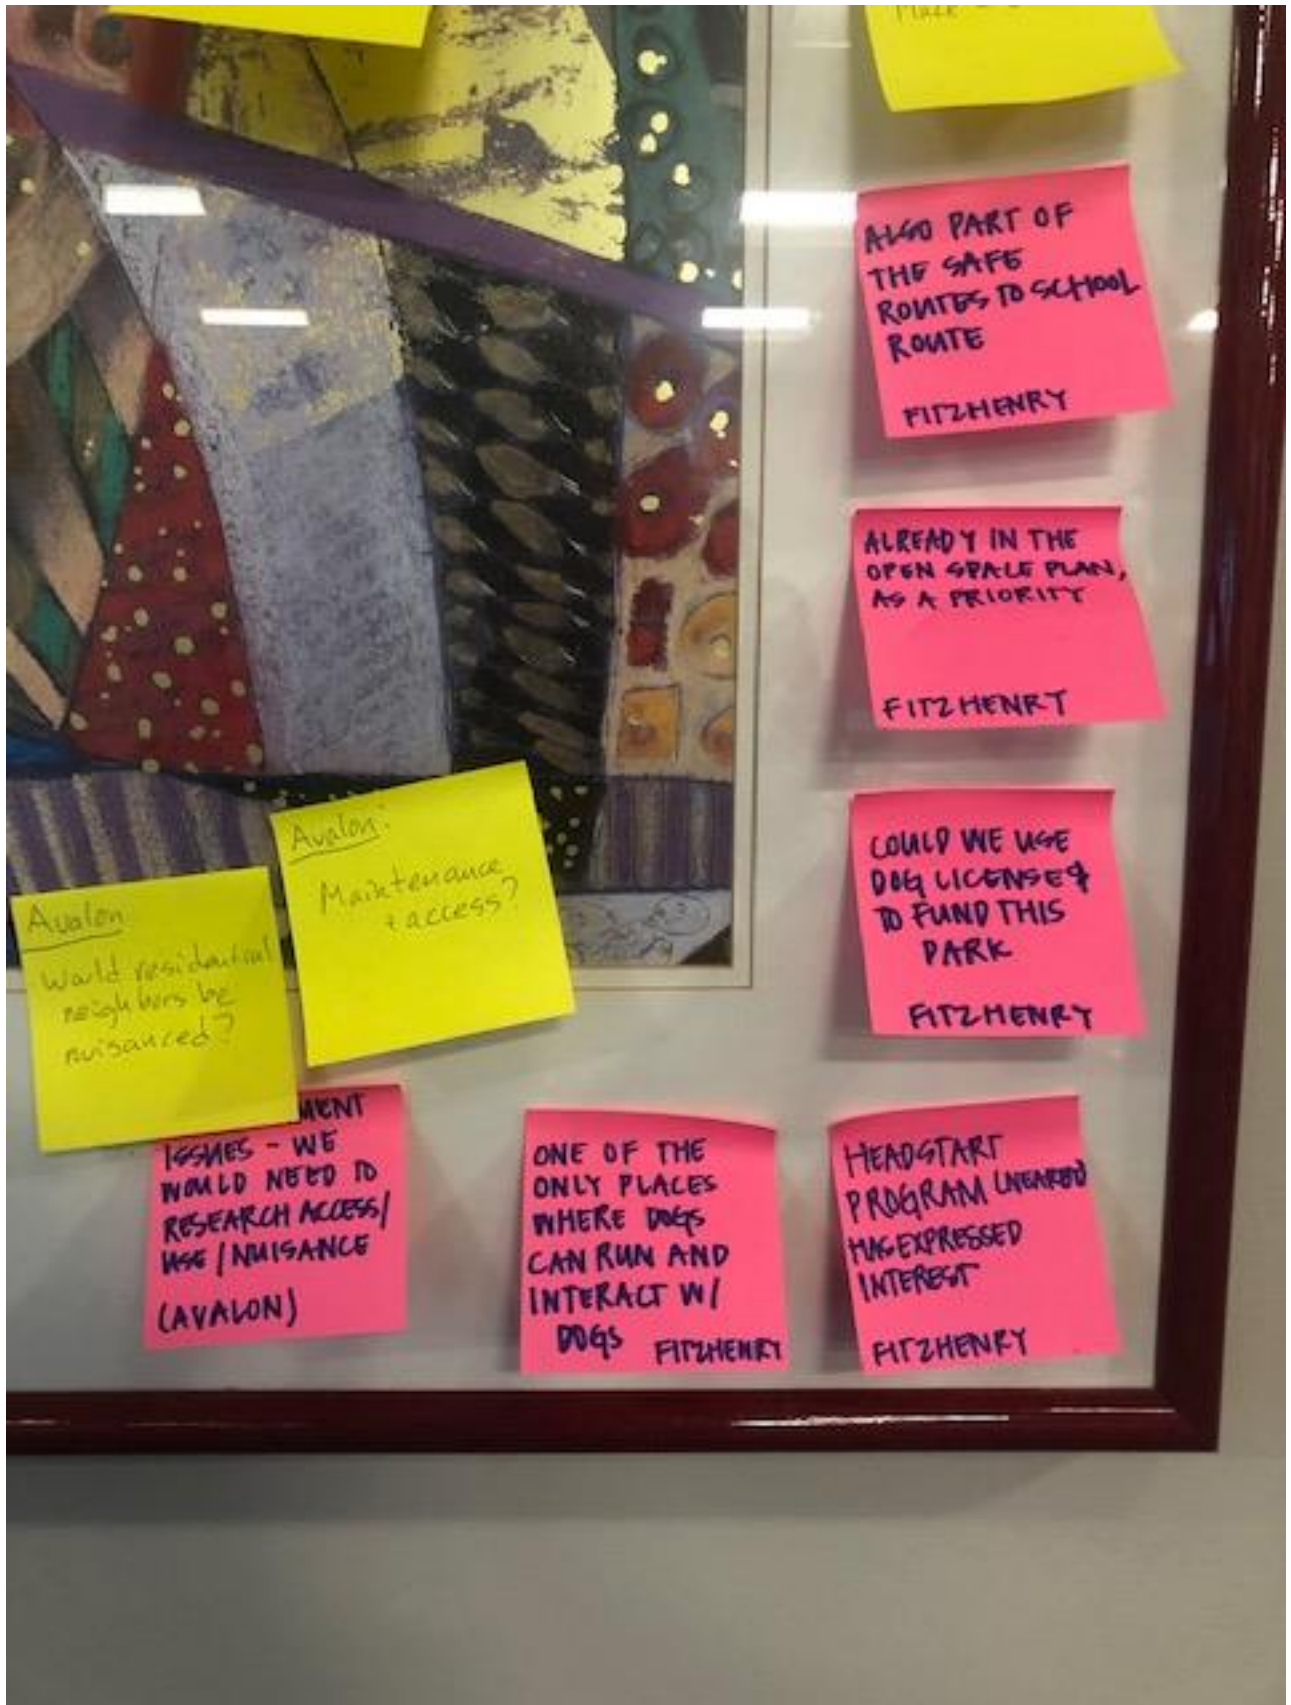 ALSO PART OF
THE SAFE
ROUTES TO SCHOOL
ROUTE
FITZHENRY
ALREADY IN THE
OPEN SPACE PLAN,
AS A PRIORITY
FITZHENRY
COULD WE USE
DOG LICENSES
TO FUND THIS
PARK
FITZHENRY
Avalon:
Maintenance
+ access?
Avalon
Would residential
neighbors be
nuisanced?
MENT
ISSUES - WE
WOULD NEED TO
RESEARCH ACCESS/
USE / NUISANCE
(AVALON)
ONE OF THE
ONLY PLACES
WHERE DOGS
CAN RUN AND
INTERACT W/
DOGS FITZHENRY
HEADSTART
PROGRAM (NEARBY)
HAS EXPRESSED
INTEREST
FITZHENRY